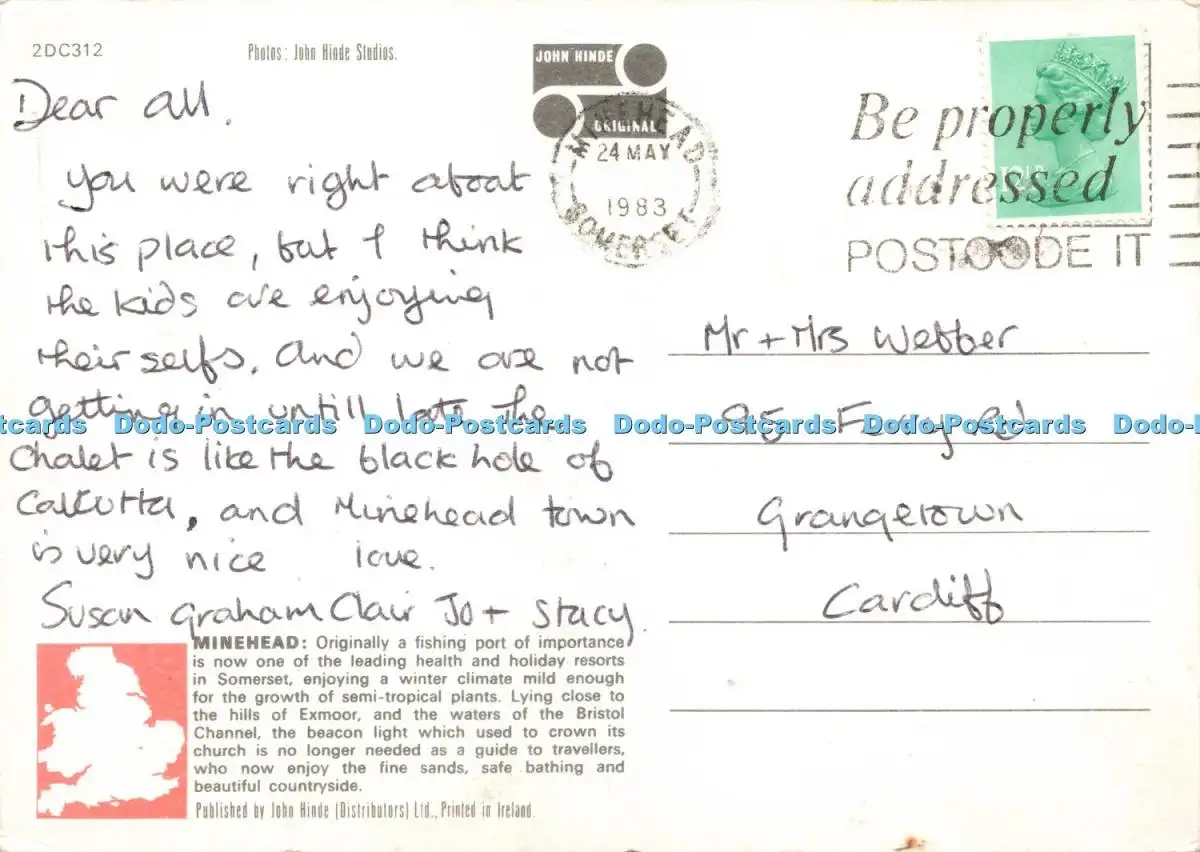 2DC312
Photos: John Hinde Studios.
JOHN HINDE
ORIGINAL
MINEHEAD
24 MAY
1983
SOMERSET
Be properly
addressed
POSTCODE IT
Dear all.
you were right about
this place, but I think
the kids are enjoying
their selfs. And we are not
getting in untill late the
Chalet is like the black hole of
Calcutta, and Minehead town
is very nice love.
Susan Graham Clair Jo + Stacy.
Mr + Mrs Webber
95 Ferry Rd
Grangetown
Cardiff
Dodo-Postcards Dodo-Postcards Dodo-Postcards Dodo-Postcards
MINEHEAD: Originally a fishing port of importance
is now one of the leading health and holiday resorts
in Somerset, enjoying a winter climate mild enough
for the growth of semi-tropical plants. Lying close to
the hills of Exmoor, and the waters of the Bristol
Channel, the beacon light which used to crown its
church is no longer needed as a guide to travellers,
who now enjoy the fine sands, safe bathing and
beautiful countryside.
Published by John Hinde (Distributors) Ltd., Printed in Ireland.